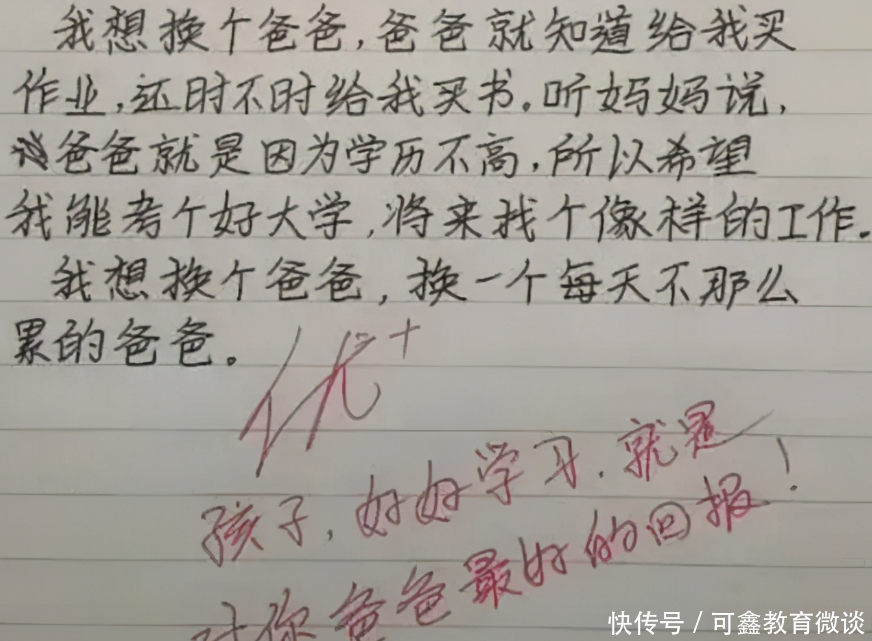 我想换个爸爸,爸爸就知道给我买
作业,还时不时给我买书。听妈妈说,
爸爸就是因为学历不高,所以希望
我能考个好大学,将来找个像样的工作。
我想换个爸爸,换一个每天不那么
累的爸爸。
优+
孩子,好好学习,就是
对你爸爸最好的回报!
快传号/可鑫教育微谈